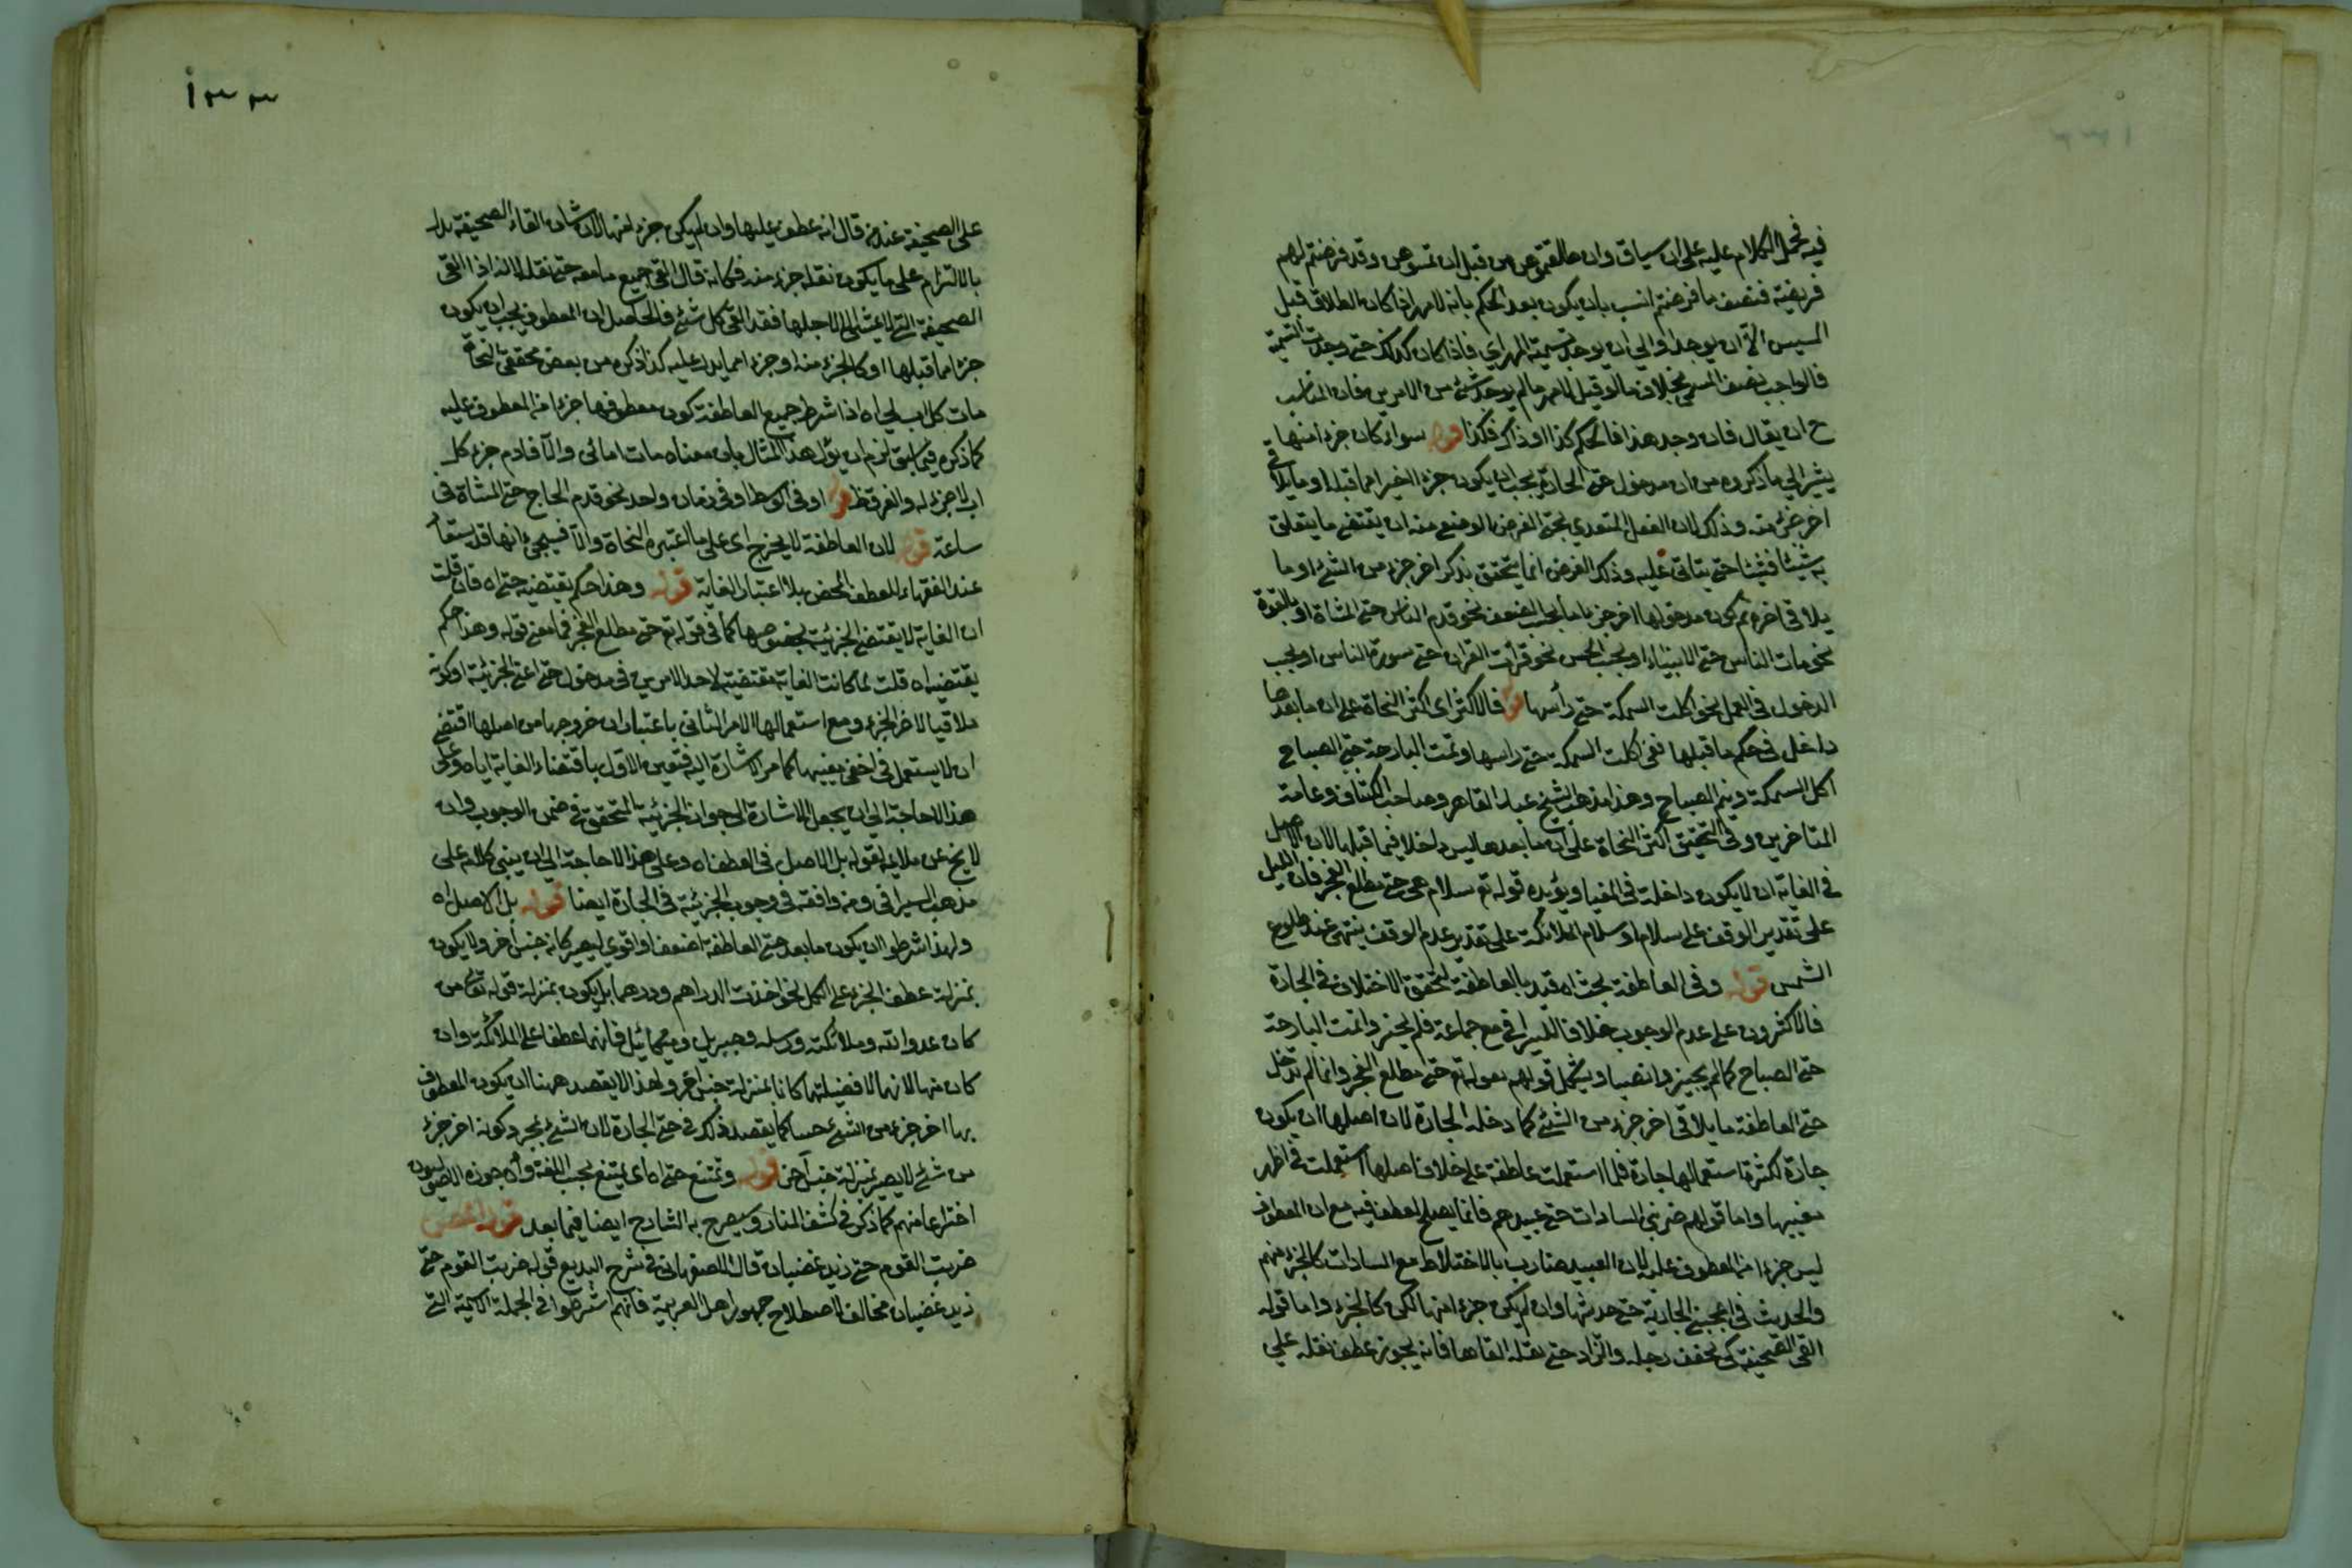 فيه فحمل الكلام عليه على ان سياق وان طلقتموهن من قبل ان تمسوهن وقد فرضتم لهن
فريضة فنصف ما فرضتم انسب بان يكون بعد الحكم بانه لا مهر اذا كان الطلاق قبل
المسيس الا ان يوجد او الى ان يوجد تسمية المهر اي فاذا كان كذلك حتى وجدت التسمية
فالواجب نصف المسمى بخلاف ما لو قيل لا مهر ما لم يوجد شئ من الامرين فان المناسب
ح ان يقال فان وجد هذا فالحكم كذا او ذاك فكذا قوله سواء كان جزء منها
يشير الى ما ذكروه من ان مدخول حتى الجارة يجب ان يكون جزء اخيرا مما قبلها او ما يلاقي
اخر جزء منه وذلك لان الفعل المتعدي بحتى الغرض الوضع منه ان يقتضى ما يتعلق
به شيئا فشيئا حتى يتأتى عليه وذلك الغرض انما يتحقق بذكر اخر جزء من الشئ او ما
يلاقى اخره ثم كون مدخولها اخر جزء اما بحسب الضعف نحو قدم الناس حتى المشاة او بالقوة
نحو مات الناس حتى الانبياء او بحسب الحس نحو قرأت القران حتى سورة الناس او بحسب
الدخول في العمل نحو اكلت السمكة حتى رأسها قوله فالاكثر اى اكثر النحاة على ان ما بعدها
داخل في حكم ما قبلها ففى اكلت السمكة حتى راسها ونمت البارحة حتى الصباح
اكل السمكة ونيم الصباح وهذا مذهب الشيخ عبد القاهر وصاحب الكشاف وعامة
المتاخرين وفى التحقيق اكثر النحاة على ان ما بعدها ليس داخلا فيما قبلها لان الاصل
في الغاية ان لا يكون داخلة في المغيا ويؤيده قوله تع سلام هي حتى مطلع الفجر فان الليل
على تقدير الوقف على سلام او سلام الملائكة على تقدير عدم الوقف ينتهى عند طلوع
الشمس قوله وفى العاطفة يجب اه قيد بالعاطفة لتحقق الاختلاف في الجارة
فالاكثرون على عدم الوجوب خلافا للسيرافى مع جماعة فلم يجيزوا نمت البارحة
حتى الصباح كما لم يجيزوا نصبا ويشكل قولهم بقوله تع حتى مطلع الفجر وانما لم تدخل
حتى العاطفة ما يلاقى اخر جزء من الشئ كما دخله الجارة لان اصلها ان يكون
جارة لكثرة استعمالها جارة فلما استعملت عاطفة على خلاف اصلها استعملت في اظهر
معنييها واما قولهم ضربني السادات حتى عبيدهم فانما يصلح العطف فيه مع ان المعطوف
ليس جزءا من المعطوف عليه لان العبيد صارت بالاختلاط مع السادات كالجزء منهم
والحديث في اعجبني الجارية حتى حديثها وان لم يكن جزء منها لكن كالجزء واما قوله
القى الصحيفة كى يخفف رحله والزاد حتى نعله القاها فانه يجوز عطف نعله على
١٣٣
على الصحيفة عند من قال انه عطف عليها وان لم يكن جزء منها لان شان القاء الصحيفة يدل
بالالتزام على ما يكون نعله جزء منه فكانه قال القى جميع ما معه حتى نعله لانه اذا القى
الصحيفة التى لا يمشى الا لاجلها فقد القى كل شئ فالحاصل ان المعطوف يجب ان يكون
جزءا مما قبلها او كالجزء منه او جزء مما يدل عليه كذا ذكره من بعض محققى النحاة
مات كل اب لى حتى اه اذا شرط جميع العاطفة كون معطوفها جزءا من المعطوف عليه
كما ذكره فيما سبق لزم ان يؤل هذا المثال بان معناه مات ابائى والا فادم جزء كل
اب لا جزء له والفرق ظ قوله او فى الوسط او فى زمان واحد نحو قدم الحاج حتى المشاة فى
ساعة قوله لان العاطفة لا يخرج اى على ما اعتبره النحاة والا فسيجئ انها قد تستعار
عند الفقهاء للعطف المحض بلا اعتبار الغاية قوله وهذا حكم يقتضيه حتى اه فان قلت
ان الغاية لا يقتضى الجزئية بخصوصها كما في قوله تع حتى مطلع الفجر فما معنى قوله وهذا حكم
يقتضيه اه قلت لما كانت الغاية مقتضية لاحد الامرين في مدخول حتى اعنى الجزئية او كونه
ملاقيا لاخر الجزء ومع استعمالها الامر الثانى باعتبار ان خروجها من اصلها اقتضى
ان لا يستعمل في اخفى معنييها كما مر الاشارة اليه فتعين الاول باقتضاء الغاية اياه وعلى
هذا لا حاجة الى ان يجعل الاشارة الى جواز الجزئية المتحقق في ضمن الوجوب وان
لا يخ عن ملايمة لقوله بل الاصل في العطف اه وعلى هذا لا حاجة الى ان يبنى كلامه على
مذهب السيرافى ومن وافقه في وجوب الجزئية في الجارة ايضا قوله بل الاصل اه
ولهذا شرطوا ان يكون ما بعد حتى العاطفة اضعف او اقوى ليصير كانه جنس اخر ولا يكون
بمنزلة عطف الجزء على الكل نحو اخذت الدراهم ودرهما بل يكون بمنزلة قوله تعالى من
كان عدوا لله وملائكته ورسله وجبريل وميكائيل فانهما عطفا على الملائكة وان
كان منها لانهما لافضيلتهما كانا بمنزلة جنس اخر ولهذا لا يقصد ههنا ان يكون المعطوف
بها اخر جزء من الشئ حسا كما يقصد ذلك في حتى الجارة لان الشئ بمجرد كونه اخر جزء
من شئ لا يصير بمنزلة جنس آخر قوله وتمتنع حتى اه اى يمتنع بحسب اللغة وان جوزه الاصوليون
اختراعا منهم كما ذكره في كشف المنار وسيصرح به الشارح ايضا فيما بعد قوله
ضربت القوم حتى زيد غضبان قال الاصفهانى في شرح البديع قوله ضربت القوم حتى
زيد غضبان مخالف لاصطلاح جمهور اهل العربية فانهم اشترطوا في الجملة الاسمية التى